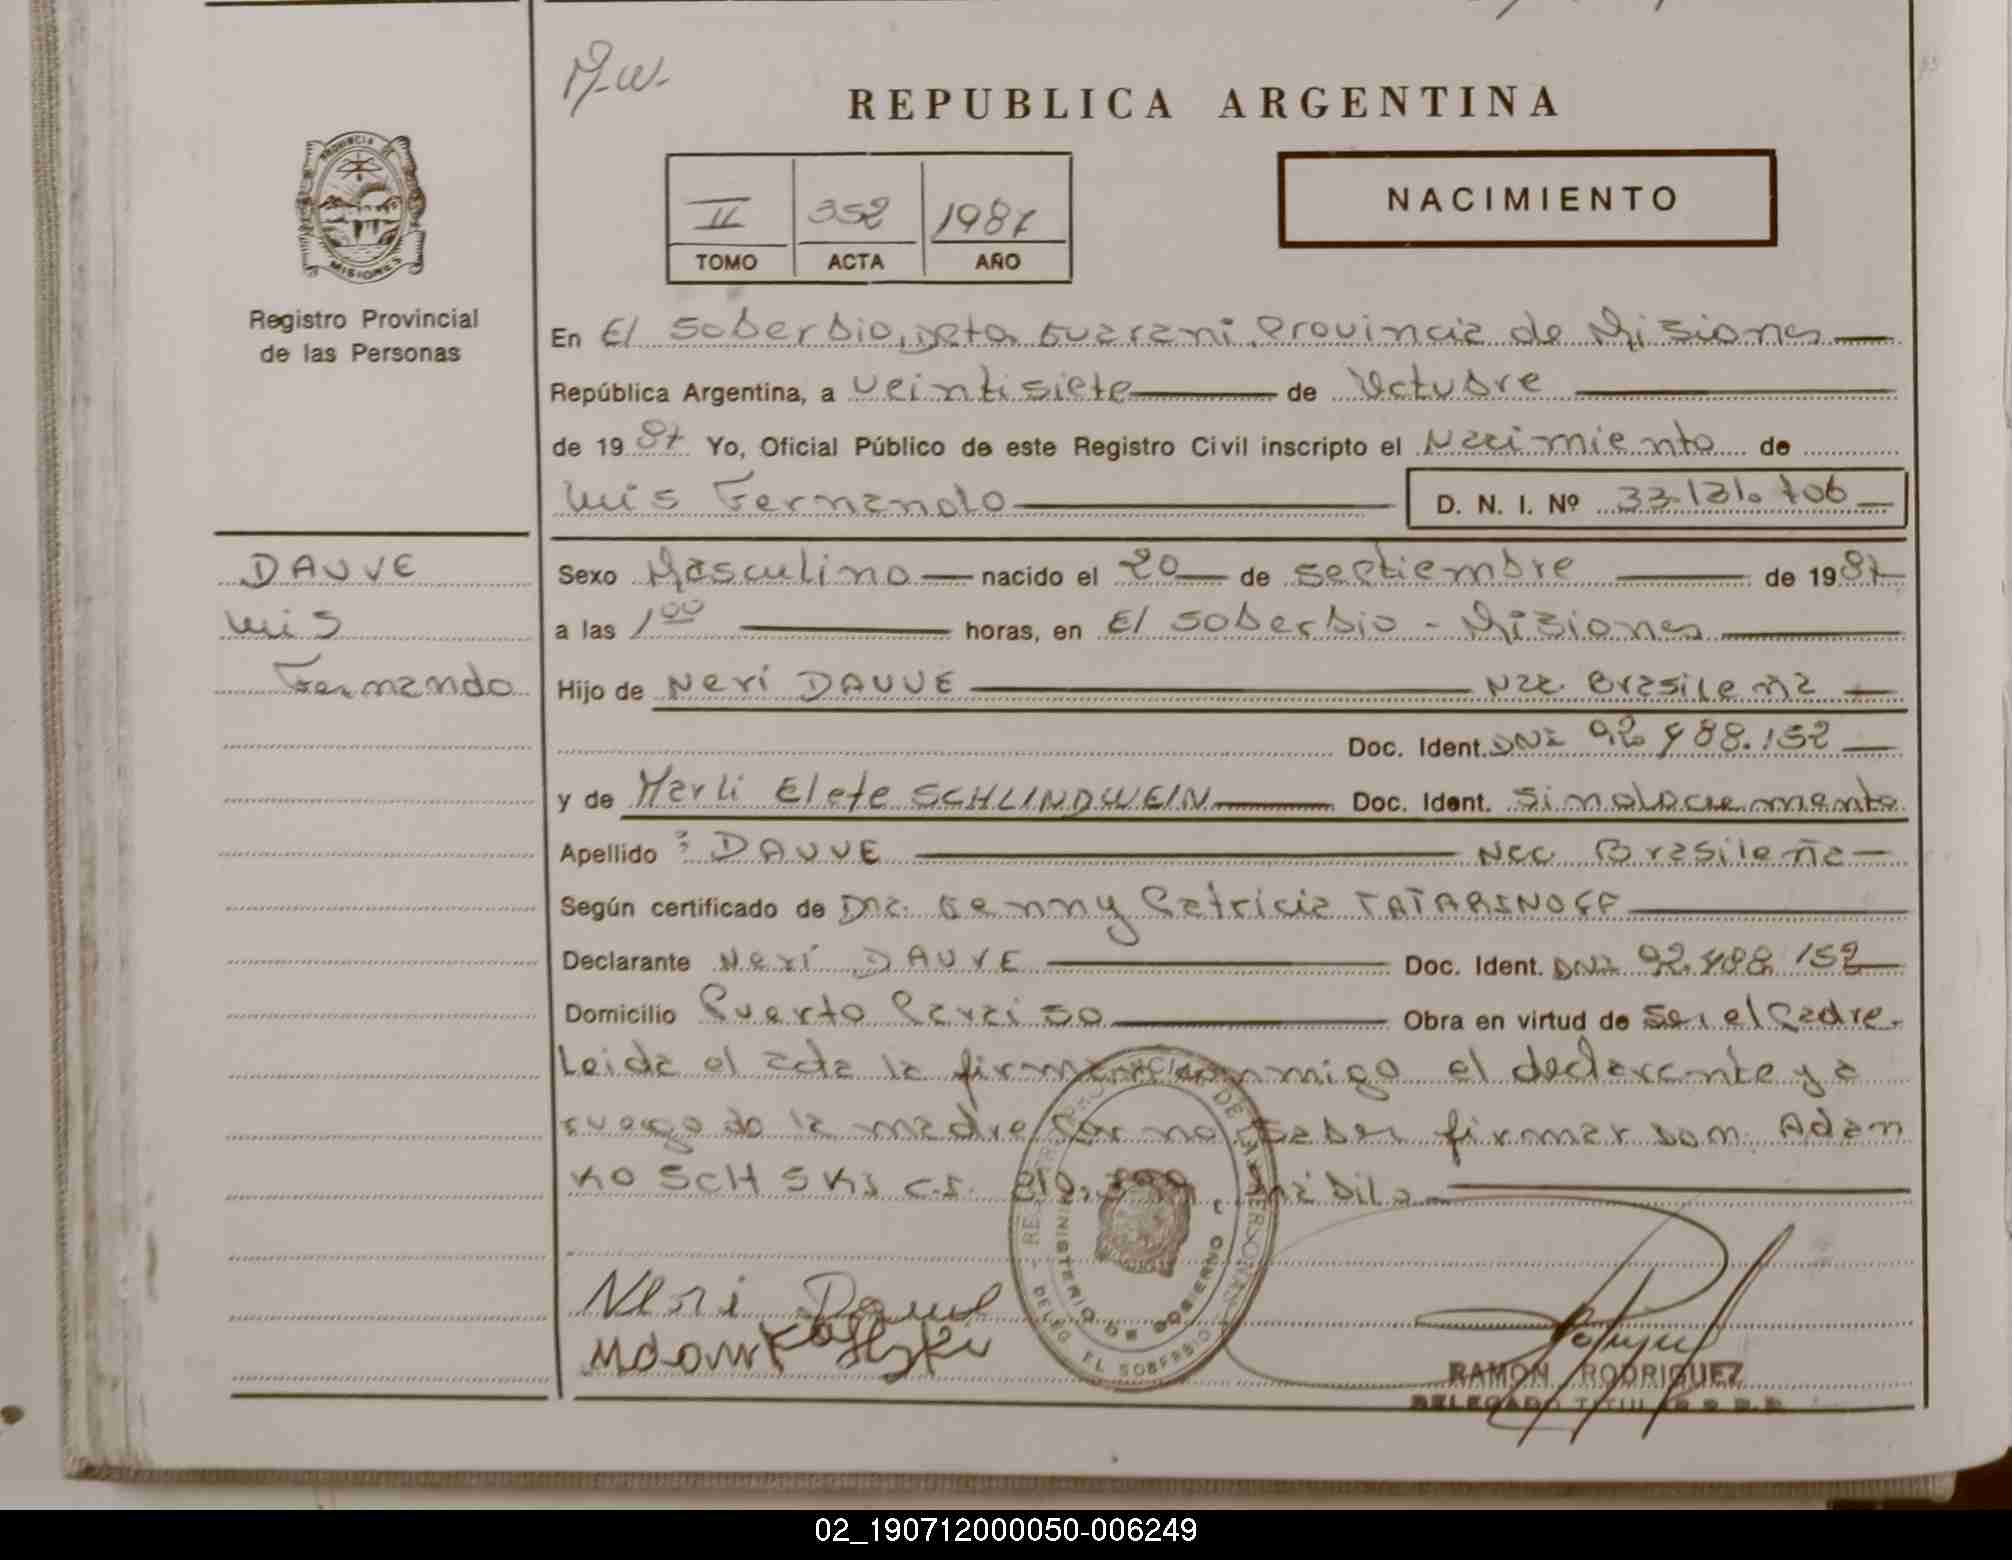 M.W.
REPUBLICA ARGENTINA
II 352 1987
TOMO ACTA AÑO
NACIMIENTO
PROVINCIA DE MISIONES
Registro Provincial
de las Personas
En El Soberbio, Dpto Guarani, Provincia de Misiones
República Argentina, a veintisiete de Octubre
de 1987 Yo, Oficial Público de este Registro Civil inscripto el Nacimiento de
Luis Fernando D. N. I. Nº 33.131.706
DAUVE
Luis
Fernando
Sexo Masculino nacido el 20 de septiembre de 1987
a las 1 00 horas, en El Soberbio - Misiones
Hijo de Neri DAUVE Nac. Brasileña
Doc. Ident. DNI 92.488.152
y de Marli Elete SCHLINDWEIN Doc. Ident. Sin documento
Apellido : DAUVE Nac. Brasileña
Según certificado de Dra. Genny Patricia TATARINOFF
Declarante Neri DAUVE Doc. Ident. DNI 92.488.152
Domicilio Puerto Paraiso Obra en virtud de Ser el Padre.
Leida el acta la firman conmigo el declarante y a
ruego de la madre por no saber firmar don Adan
KOSCHSKI C.I.
REGISTRO PROVINCIAL DE LAS PERSONAS
MINISTERIO DE GOBIERNO
DELEG. EL SOBERBIO
Neri Dauve
RAMON RODRIGUEZ
DELEGADO TITULAR R.P.P.
02_190712000050-006249